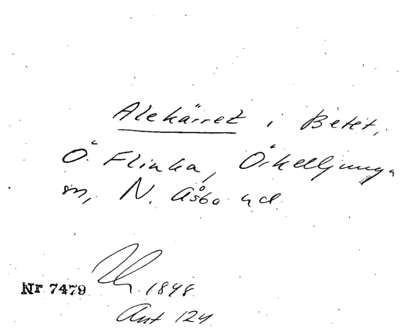 Alekärret i Betet,
Ö. Flinka, Örkelljunga
sn, N. Åsbo hd
Nr 7479 1848
Ant 124